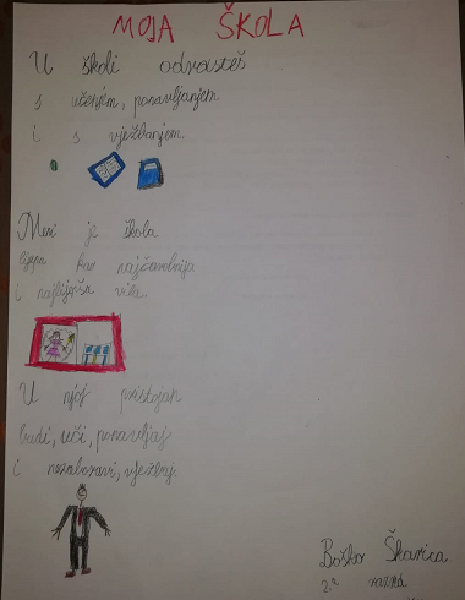 MOJA ŠKOLA
U školi odrasteš
s učenjem, ponavljanjem
i s vježbanjem.
Meni je škola
lijepa kao najčarolnija
i najljepša vila.
U njoj pristojan
budi, uči, ponavljaj
i nezaboravi, vježbaj.
Boško Škarica
2.a razred